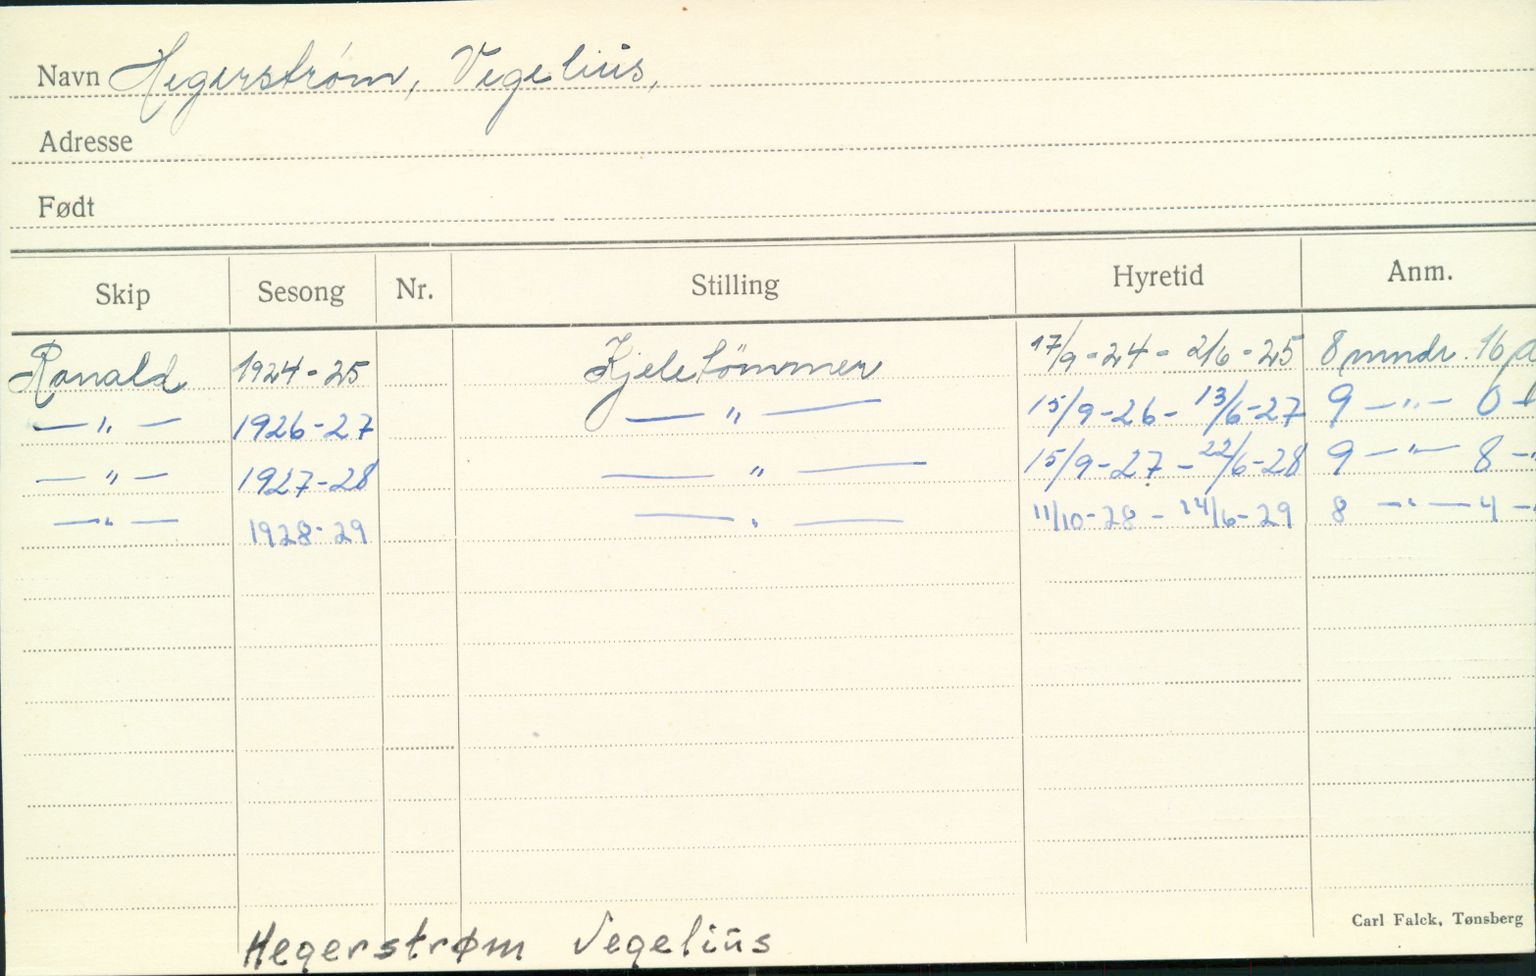 Navn Hegerstrøm, Vegelius,
Adresse
Født
Skip Sesong Nr. Stilling Hyretid Anm.
Ronald 1924-25 Kjeletömmer 17/9-24 - 2/6-25 8 mndr. 16
— " — 1926-27 — " — 15/9-26 - 13/6-27 9 — " — 0 -
— " — 1927-28 — " — 15/9-27 - 22/6-28 9 — " — 8 - "
— " — 1928-29 — " — 11/10-28 - 14/6-29 8 — " — 4 -
Carl Falck, Tønsberg
Hegerstrøm Vegelius